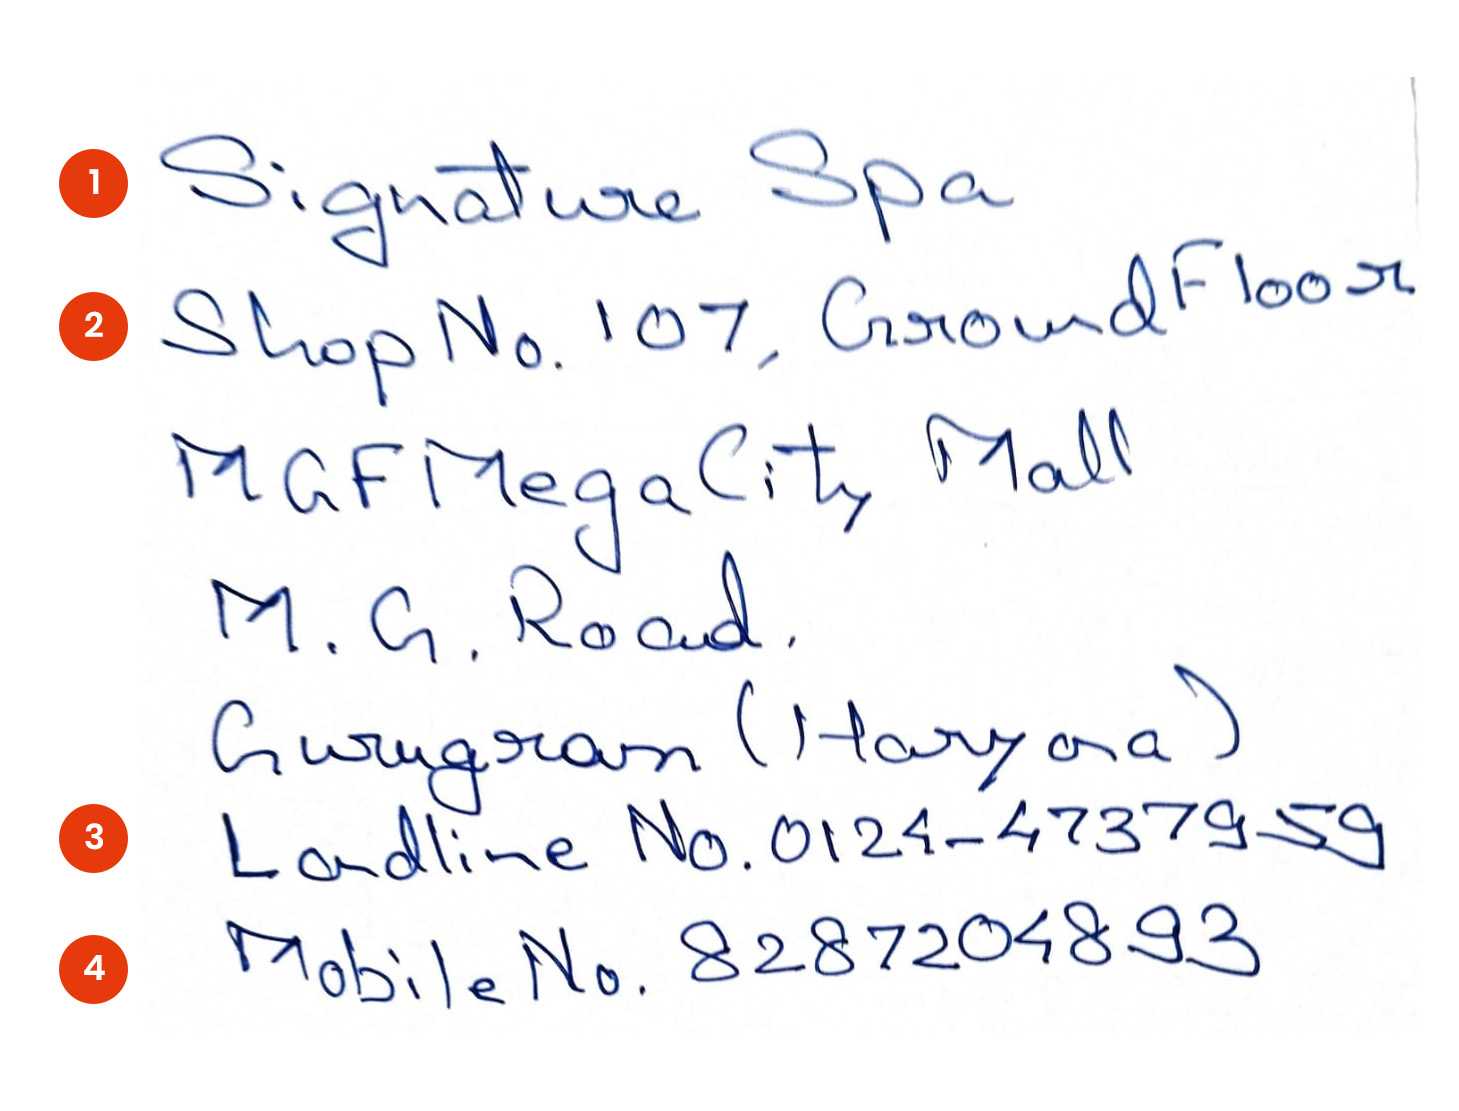 1 Signature Spa
2 Shop No. 107, Ground Floor
MGF Mega City Mall
M. G. Road.
Gurugram (Haryana)
3 Landline No. 0124-4737959
4 Mobile No. 8287204893